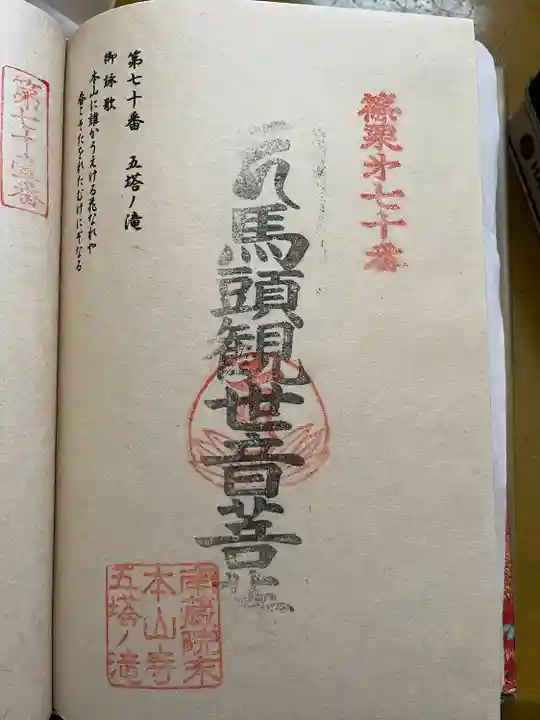 篠栗第七十番
馬頭観世音菩
南蔵院末
本山寺
五塔ノ滝
第七十番 五塔ノ滝
御詠歌
本山に誰かうえける花なれや
春こそたをれたむけにぞなる
第七十壹番